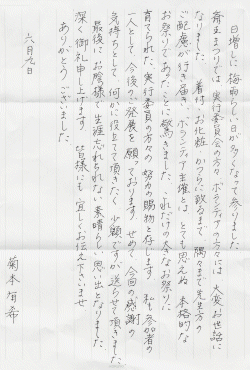 日増しに梅雨らしい日が多くなって参りました
斎王まつりでは 実行委員会の方々 ボランティアの方々には 大変お世話に
なりました 着付 お化粧 かつらに致るまで 隅々まで先生方の
ご配慮が行き届き、ボランティア主催とは とても思えぬ 本格的な
お祭りであることに驚きました これだけの大きなお祭りに
育てられた、実行委員の方々の 努力の賜物と存じます 私も参加者の
一人として 今後のご発展を願っております せめて 今回の感謝の
気持ちとして 何かに役立てて頂きたく 少額ですが送らせて頂きました
最後に お陰様で生涯忘れられない素晴らしい思い出となりました
深く御礼申し上げます 皆様にも 宜しくお伝え下さいませ
ありがとう ございました
六月九日
菊本 有希